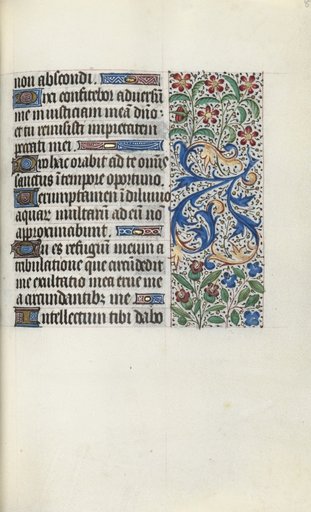 non abscondi.
Dixi confitebor adversū
me iniusticiam meā dño:
et tu remisisti impietatem
peccati mei.
Pro hac orabit ad te omīs
sanctus ī tempore oportuno.
Verumptamen ī diluuio
aquar multarū ad eū nō
approximabunt.
Tu es refugiū meum a
tribulatione que circūdedit
me exultatio mea erue me
a circundantibꝫ me
Intellectum tibi dabo